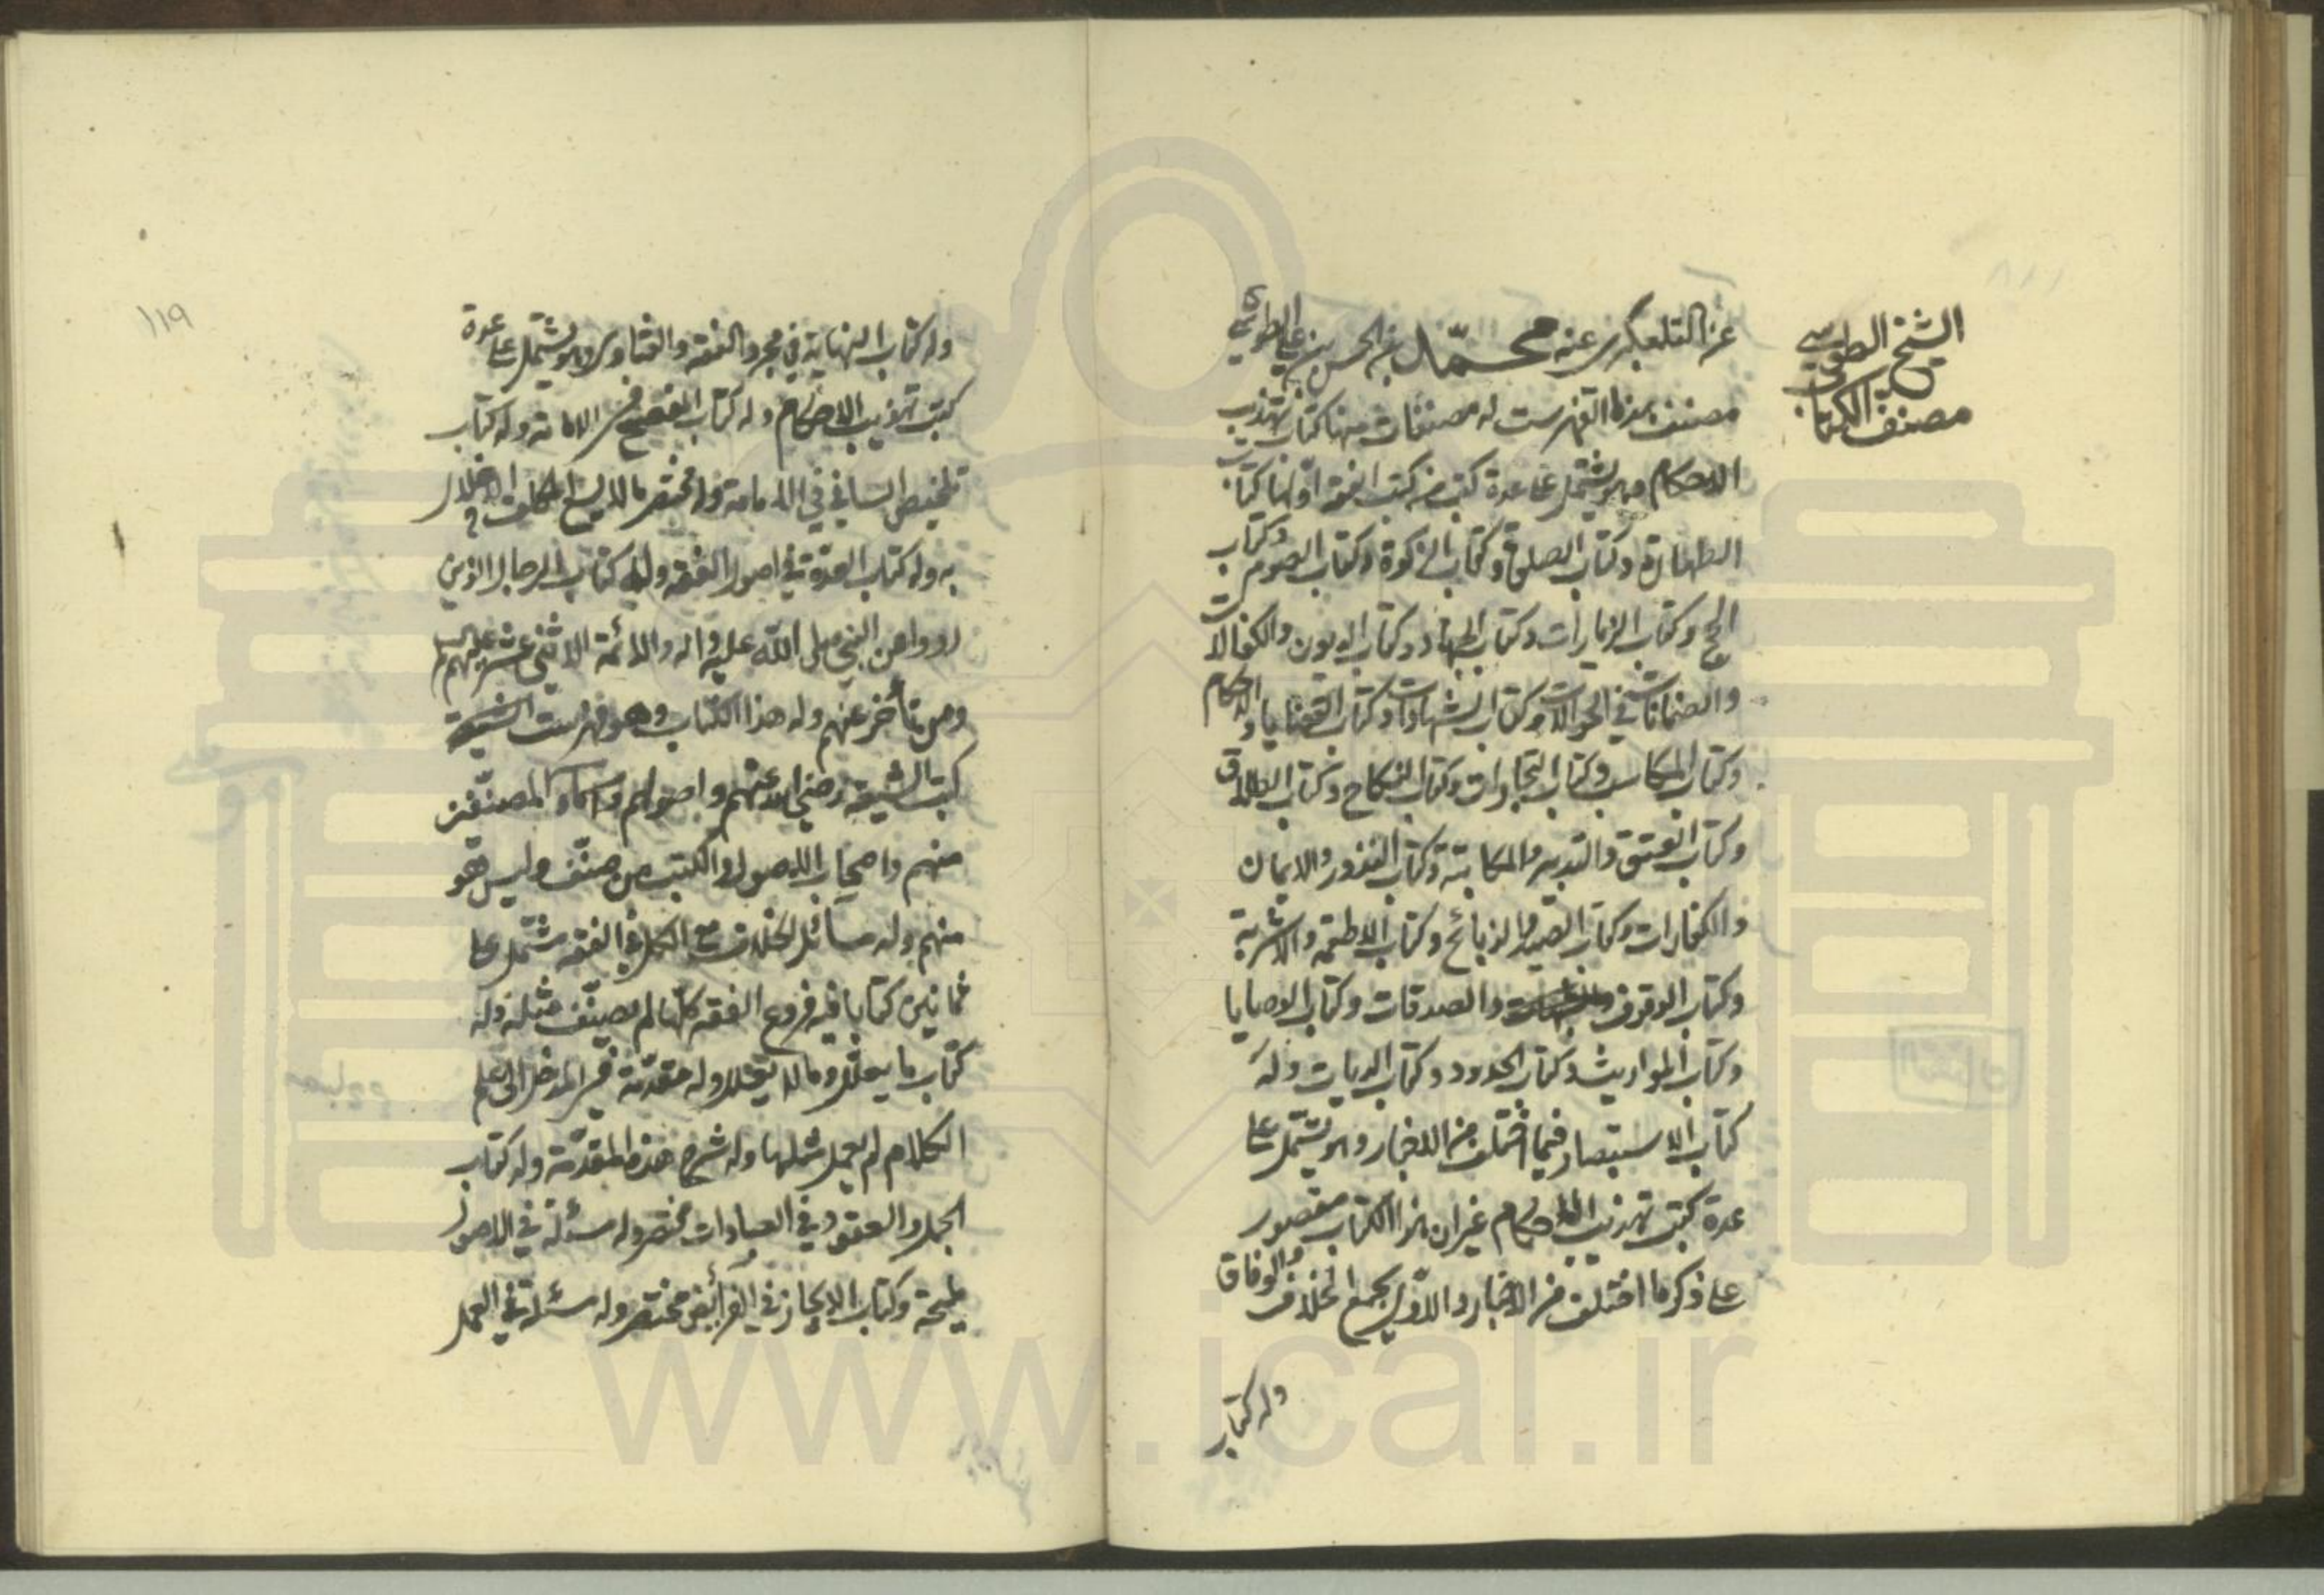 الشيخ الطوسي
مصنف الكتاب
عن التلعكبري عنه محمد بن الحسن بن علي الطوسي
مصنف هذا الفهرست له مصنفات منها كتاب تهذيب
الاحكام وهو يشتمل على عدة كتب من كتب الفقه اولها كتاب
الطهارة وكتاب الصلوة وكتاب الزكوة وكتاب الصوم وكتاب
الحج وكتاب الزيارات وكتاب الجهاد وكتاب الديون والكفالات
والضمانات والحوالات وكتاب الشهادات وكتاب القضايا والاحكام
وكتاب المكاسب وكتاب التجارات وكتاب النكاح وكتاب الطلاق
وكتاب العتق والتدبير والمكاتبة وكتاب النذور والايمان
والكفارات وكتاب الصيد والذبائح وكتاب الاطعمة والاشربة
وكتاب الوقوف والصدقات وكتاب الوصايا
وكتاب المواريث وكتاب الحدود وكتاب الديات وله
كتاب الاستبصار فيما اختلف من الاخبار وهو يشتمل على
عدة كتب تهذيب الاحكام غير ان هذا الكتاب مقصور
على ذكر ما اختلف من الاخبار والاول يجمع الخلاف والوفاق
وله كتاب
١١٩
وله كتاب النهاية في مجرد الفقه والفتاوى وهو يشتمل على عدة
كتب تهذيب الاحكام وله كتاب المفصح في الامامة وله كتاب
تلخيص الشافي في الامامة وله مختصر ما لا يسع المكلف الاخلال
به وله كتاب العدة في اصول الفقه وله كتاب الرجال الذين
رووا عن النبي صلى الله عليه واله والائمة الاثني عشر عليهم السلام
ومن تأخر عنهم وله هذا الكتاب وهو فهرست
كتب الشيعة رضي الله عنهم واصولهم واسماء المصنفين
منهم واصحاب الاصول والكتب من صنف وليس هو
منهم وله مسائل الخلاف مع الكل في الفقه مشتمل على
ثمانين كتابا فيه فروع الفقه كلها لم يصنف مثله وله
كتاب ما يعلل وما لا يعلل وله مقدمة في المدخل الى علم
الكلام لم يعمل مثلها وله شرح هذه المقدمة وله كتاب
الجمل والعقود في العبادات مختصر وله مسئلة في الاصول
مليحة وكتاب الايجاز في الفرائض مختصر وله مسئلة في العمل
www.ical.ir